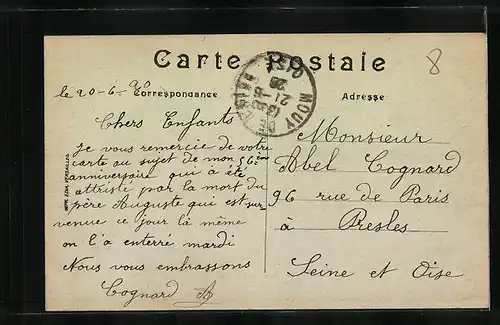 Carte Postale
8
Correspondance
Adresse
le 20-6-20
Chers Enfants
je vous remercie de votre
carte au sujet de mon 56ème
anniversaire qui à été
attristé par la mort du
père Auguste qui est sur-
venue ce jour là même
on l'a enterré mardi
Nous vous embrassons
Cognard A
Monsieur
Abel Cognard
96 rue de Paris
à Presles
Seine et Oise
MOUY
OISE
21